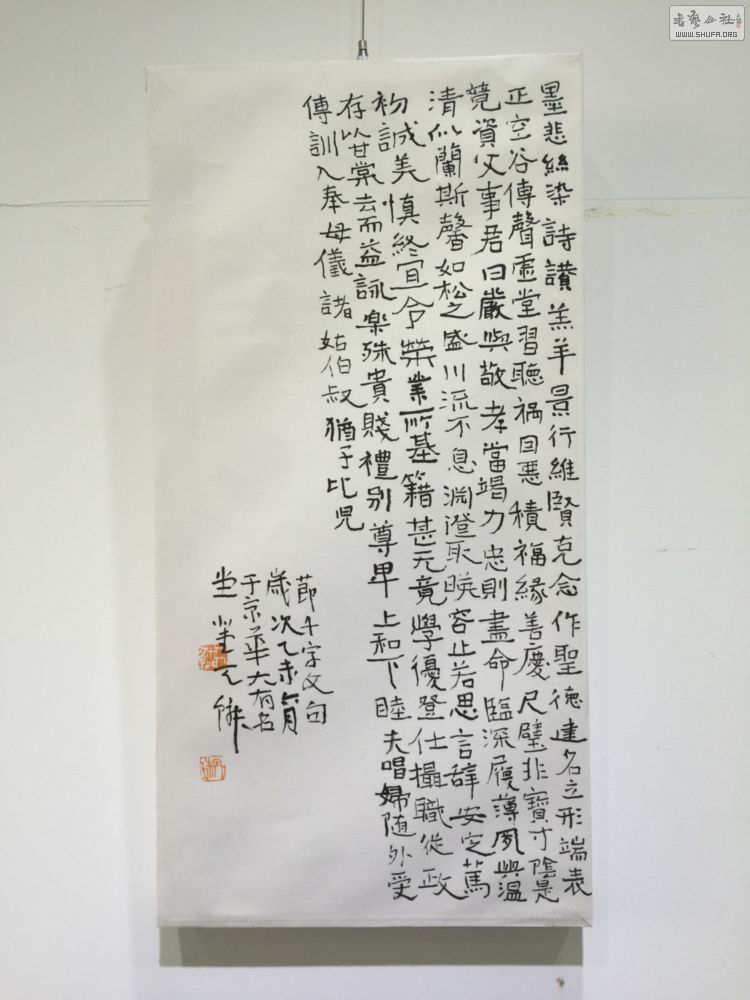 墨悲絲染詩讚羔羊景行維賢克念作聖德建名立形端表
正空谷傳聲虛堂習聽禍因惡積福緣善慶尺璧非寶寸陰是
競資父事君曰嚴與敬孝當竭力忠則盡命臨深履薄夙興溫
清似蘭斯馨如松之盛川流不息淵澄取暎容止若思言辭安定篤
初誠美慎終宜令榮業所基籍甚无竟學優登仕攝職從政
存以甘棠去而益詠樂殊貴賤禮別尊卑上和下睦夫唱婦随外受
傳訓入奉母儀諸姑伯叔猶子比児
節千字文句
歲次乙未六月
于京華大有名
書藝公社
WWW.SHUFA.ORG